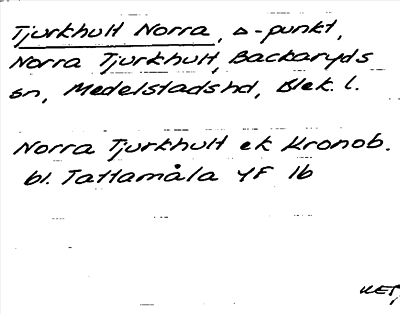 Tjurkhult Norra, △-punkt,
Norra Tjurkhult, Backaryds
sn, Medelstads hd, Blek. l.
Norra Tjurkhult ek Kronob.
bl. Tattamåla YF 16